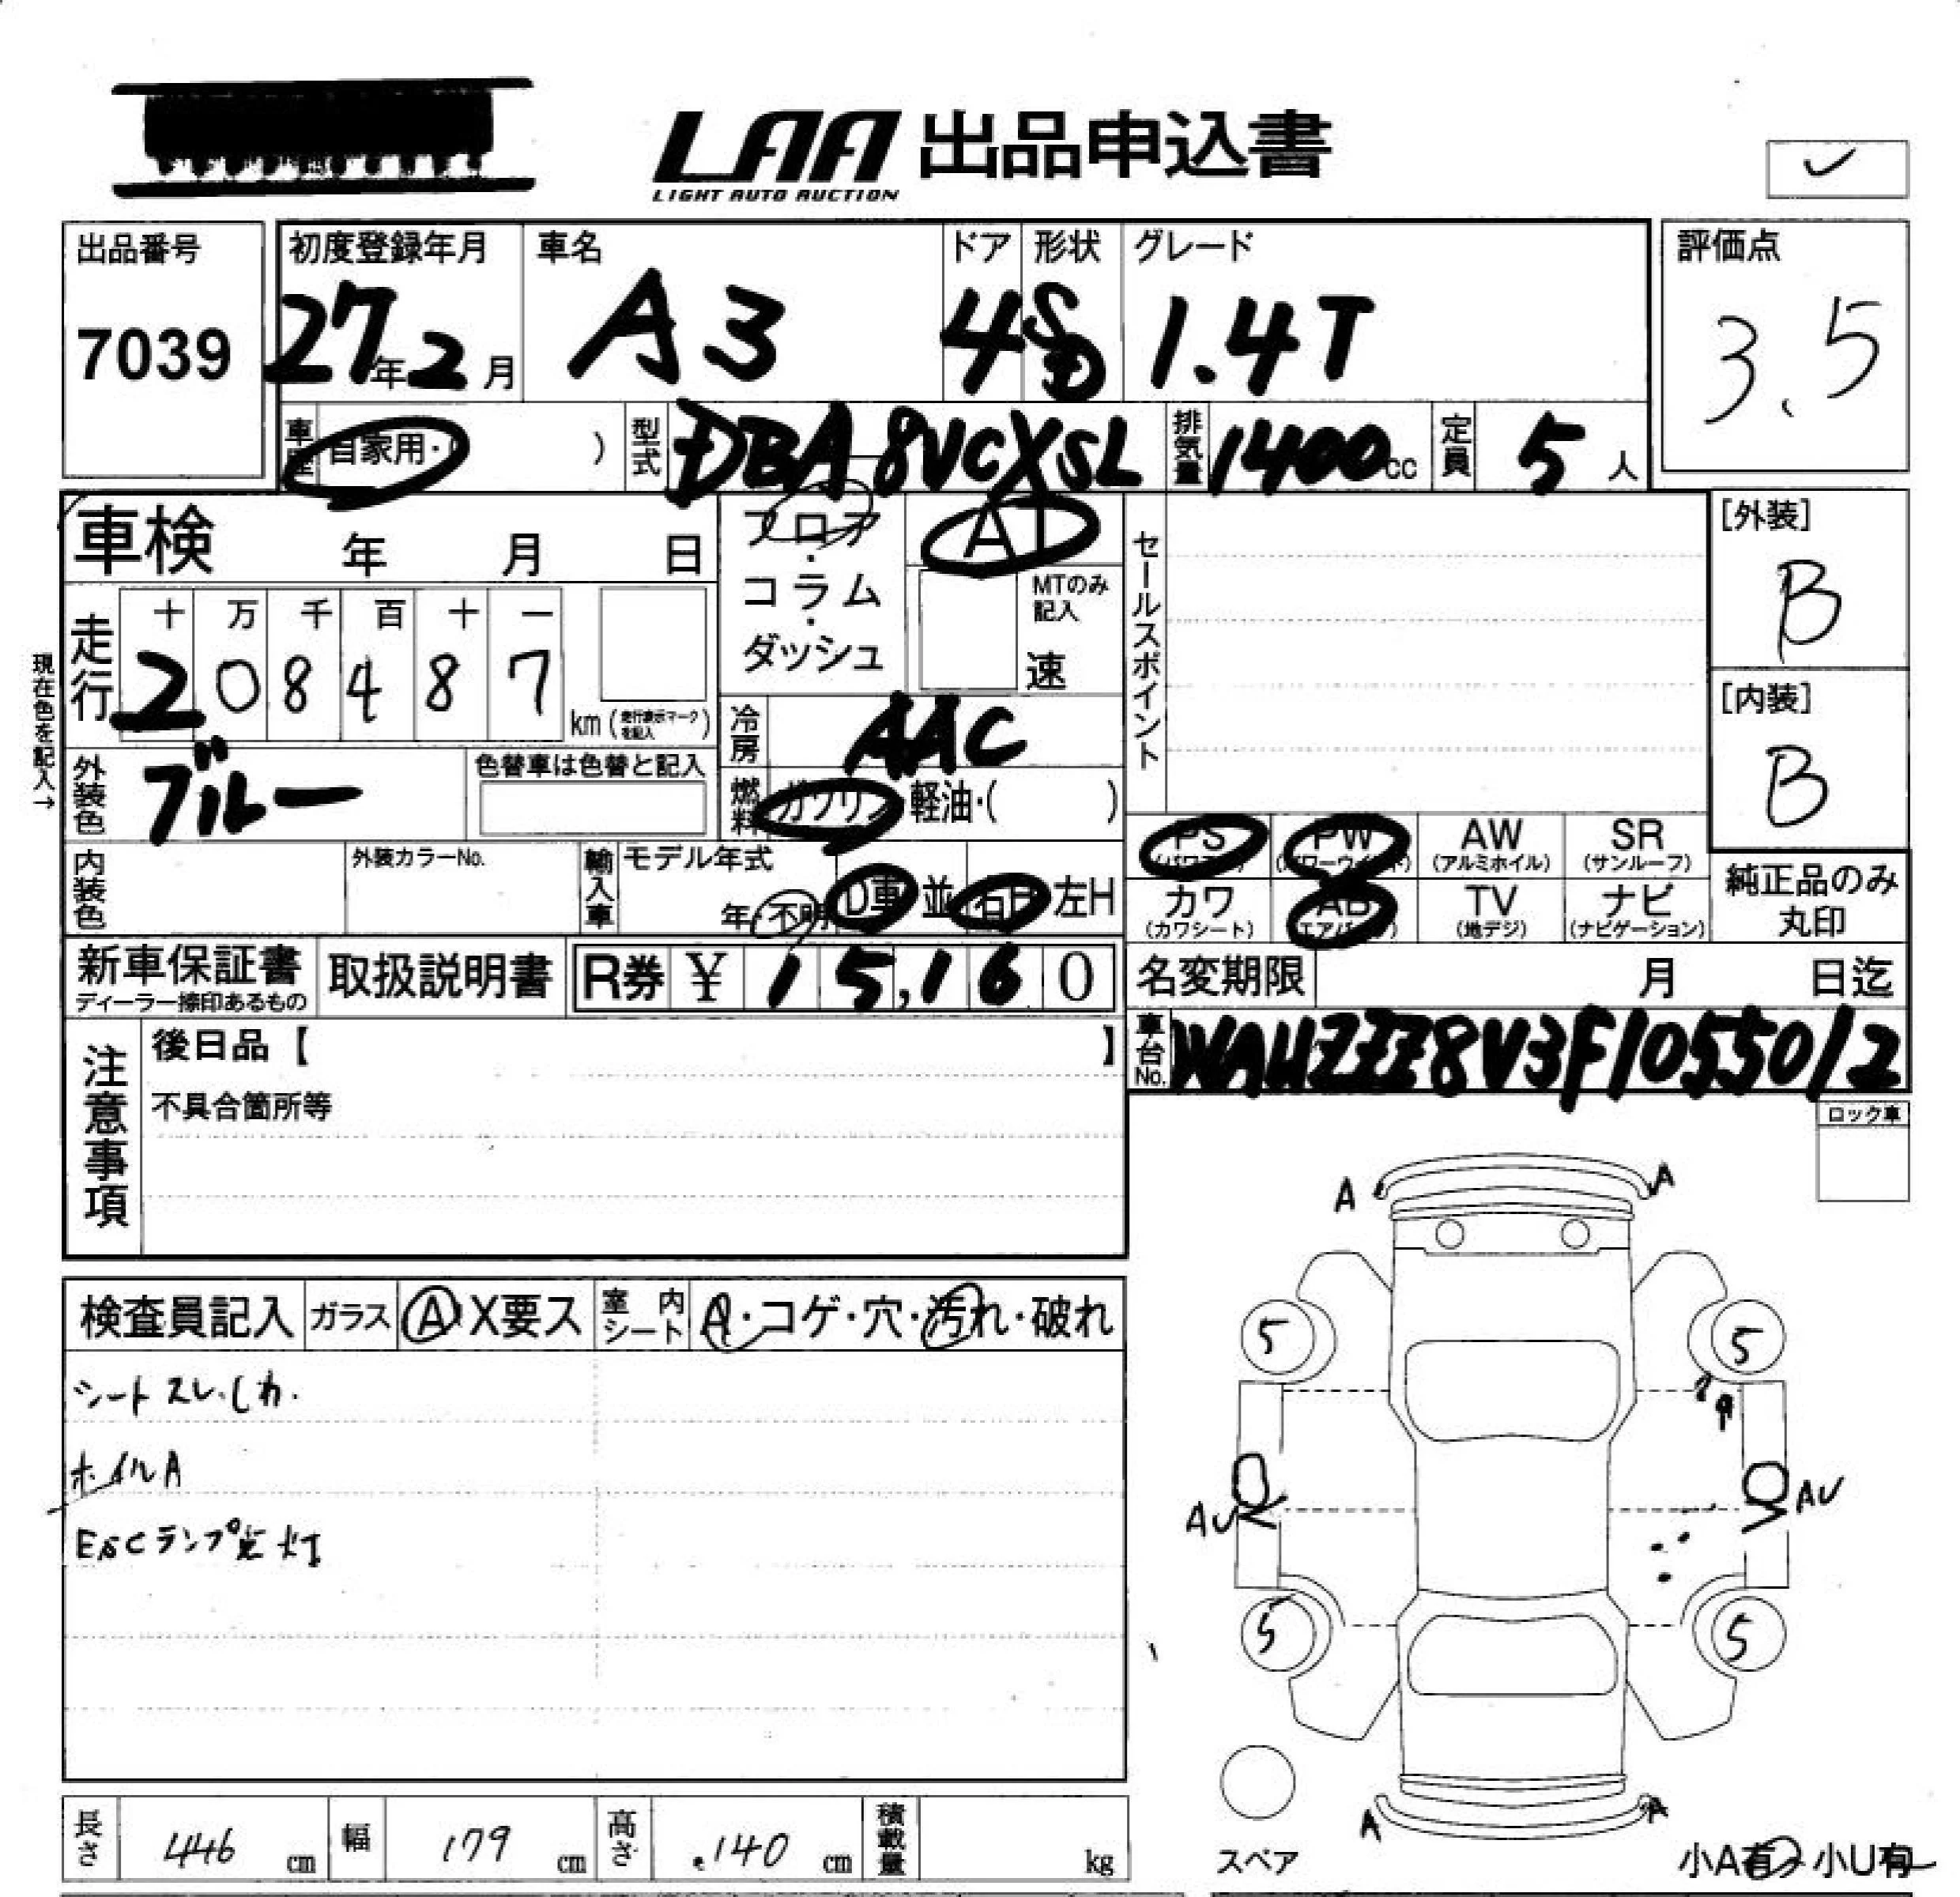 LAA 出品申込書
LIGHT AUTO AUCTION
出品番号
7039
初度登録年月
27年2月
車名
A3
ドア
4
形状
SD
グレード
1.4T
評価点
3.5
車歴
自家用・( )
型式
DBA 8VCXSL
排気量
1400cc
定員
5人
車検 年 月 日
現在色を記入→
走行
十 万 千 百 十 一
2 0 8 4 8 7
km (走行表示マークを記入)
外装色
ブルー
色替車は色替と記入
内装色
外装カラーNo.
輸入車
モデル年式
年・不明
D車 並
右H 左H
フロア・コラム・ダッシュ
AT
MTのみ記入
速
冷房
AAC
燃料
ガソリン・軽油・( )
セールスポイント
[外装]
B
[内装]
B
PS (パワステ)
PW (パワーウインド)
AW (アルミホイル)
SR (サンルーフ)
カワ (カワシート)
AB (エアバック)
TV (地デジ)
ナビ (ナビゲーション)
純正品のみ丸印
新車保証書
ディーラー捺印あるもの
取扱説明書
R券 ¥ 15,160
名変期限 月 日迄
車台No.
WAUZZZ8V3F1055012
注意事項
後日品【 】
不具合箇所等
ロック車
検査員記入
ガラス
A・X要ス
室内シート
A・コゲ・穴・汚れ・破れ
シートスレ・しわ.
ホイルA
ESCランプ点灯
A A
5 5
AU AU
5 5
A A
スペア
小A有 小U有
長さ 446 cm
幅 179 cm
高さ 140 cm
積載量 kg